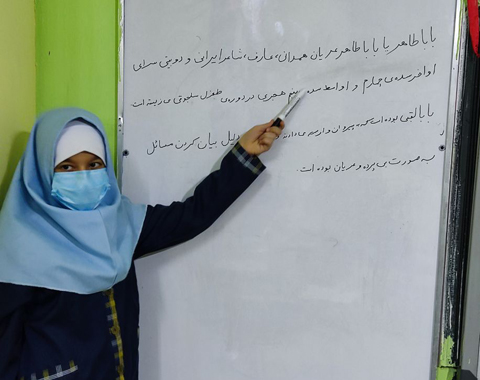 بابا طاهر یا بابا طاهر عریان همدانی، عارف، شاعر ایرانی و دوبیتی سرای
اواخر سده‌ی چهارم و اواسط سده هجری در دوره‌ی طغرل سلجوقی می زیسته است
بابا لقبی بوده است که به پیروان وارسته می‌دادند دلیل بیان کردن مسائل
به صورت بی پرده و عریان بوده است.